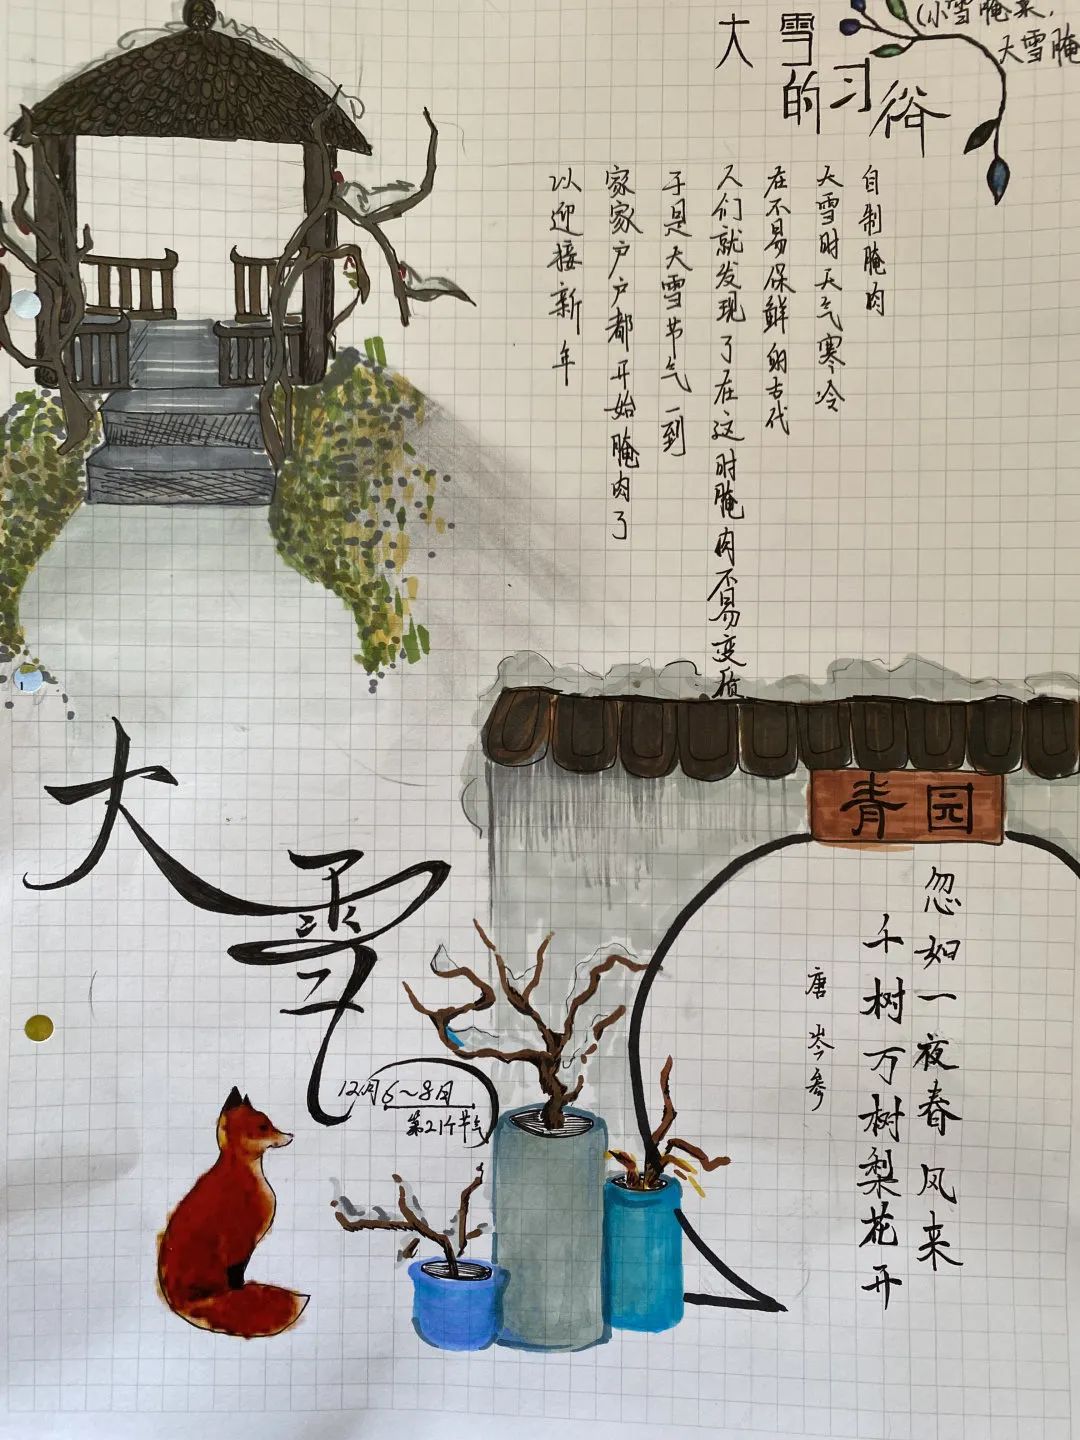 大雪
的习俗
(小雪腌菜,
大雪腌
自制腌肉
大雪时天气寒冷
在不易保鲜的古代
人们就发现了在这时腌肉不易变质
于是大雪节气一到
家家户户都开始腌肉了
以迎接新年
青园
忽如一夜春风来
千树万树梨花开
唐 岑参
大雪
12月6~8日
第21个节气